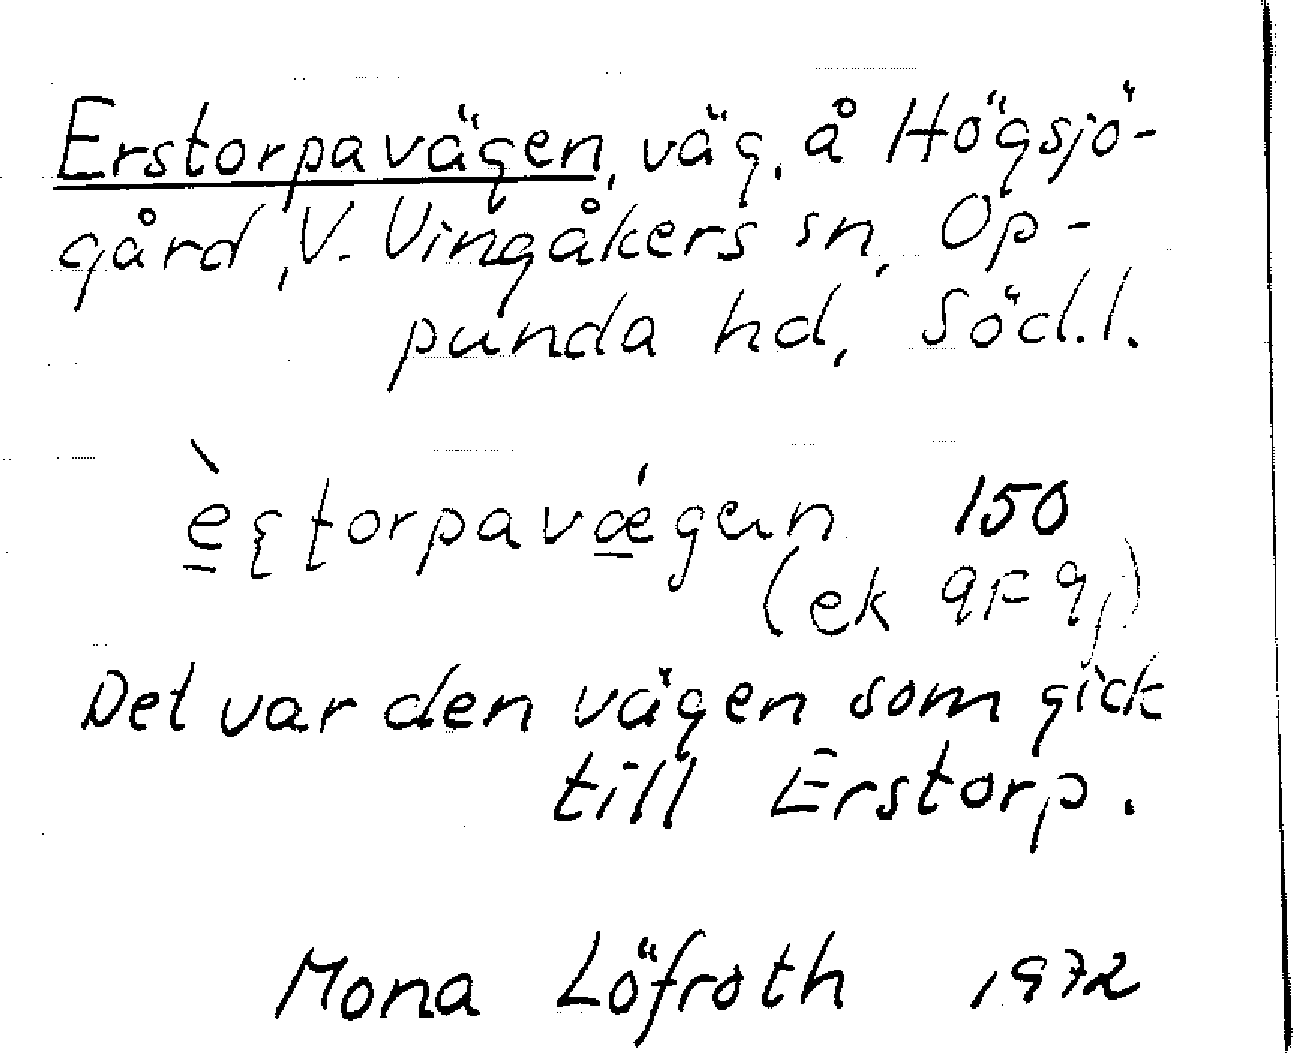 Erstorpavägen, väg, å Högsjö-
gård, V. Vingåkers sn, Op-
punda hd, Söd.l.
150
(ek 9F9j)
Det var den vägen som gick
till Erstorp.
Mona Löfroth 1972